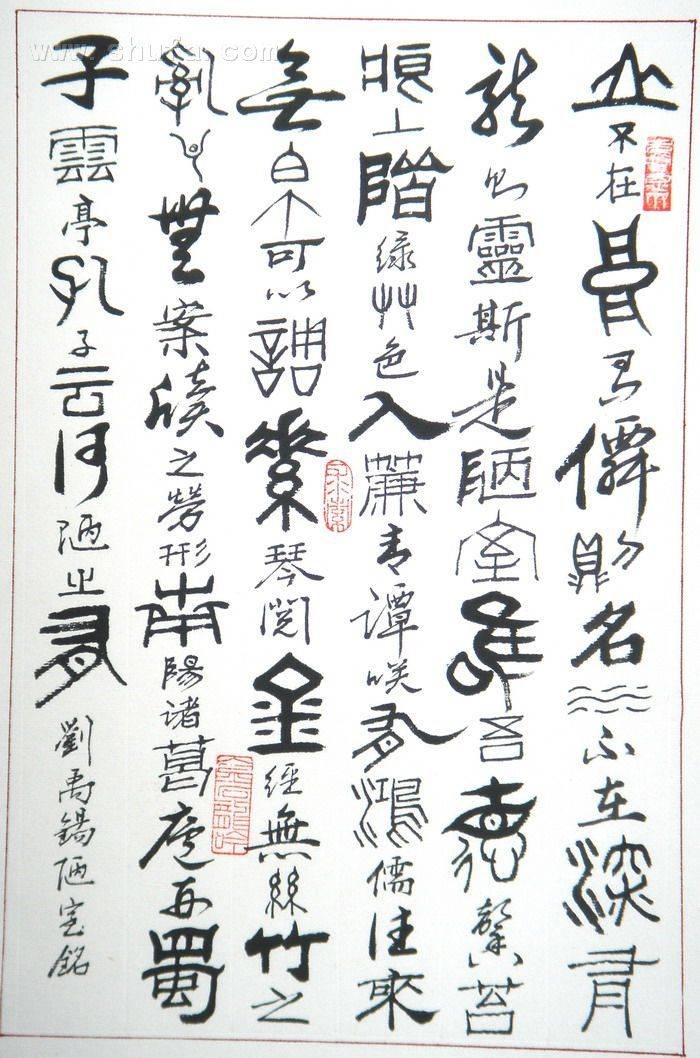 山不在高有僊則名水不在深有
龍則靈斯是陋室唯吾德馨苔
痕上階綠艸色入簾青譚咲有鴻儒往來
無白丁可以調素琴閱金經無絲竹之
亂耳無案牘之勞形南陽諸葛廬西蜀
子雲亭孔子云何陋之有
劉禹錫陋室銘
www.shufa.com